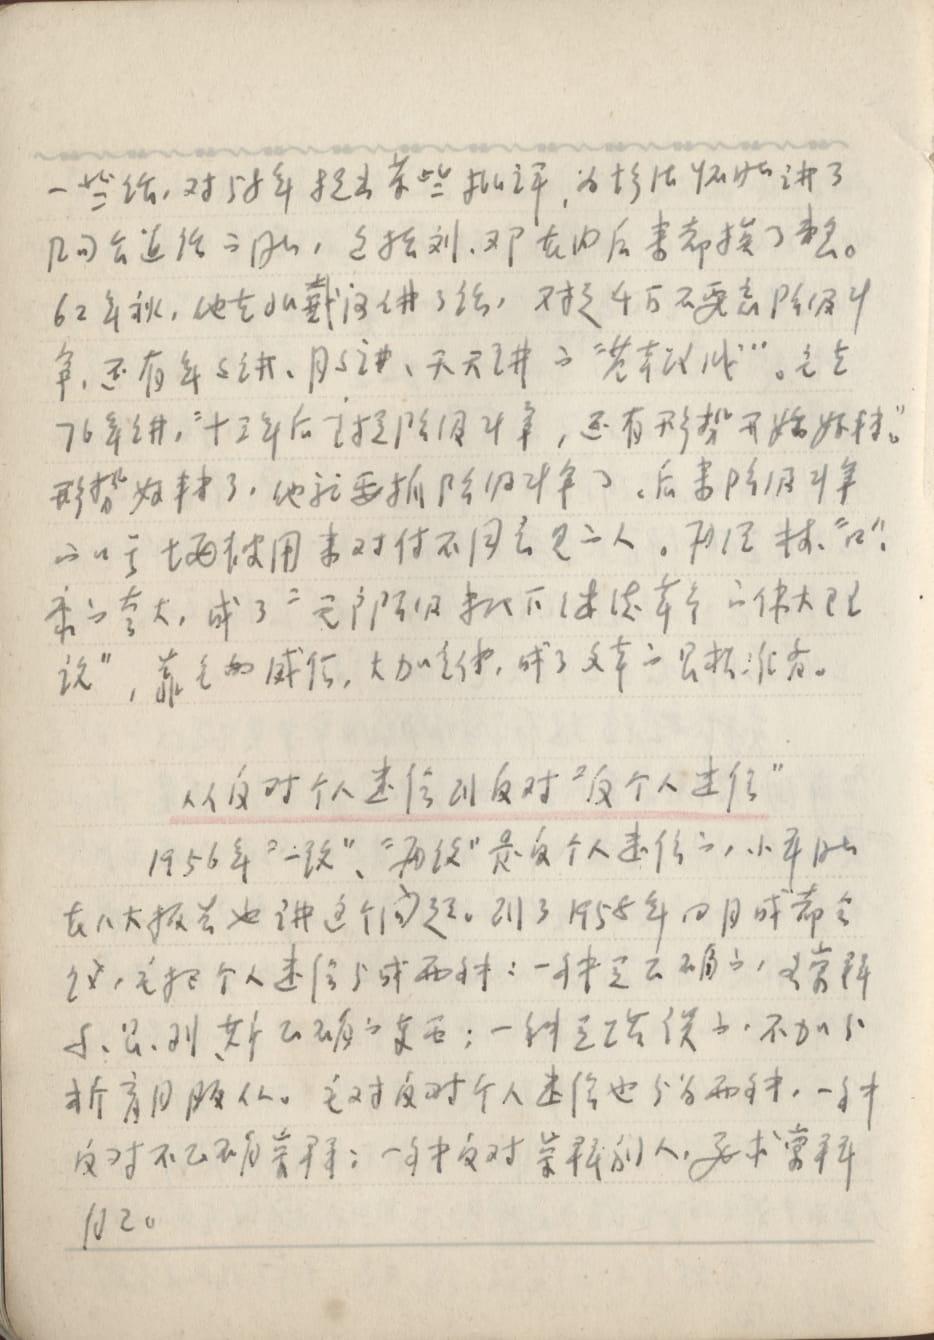 一些话，对58年提出某些批评，为彭德怀讲了
几句公道话的同志，包括刘、邓在内后来都挨了整。
62年秋，他在北戴河讲了话，不提千万不要忘阶级斗
争，还有年年讲、月月讲、天天讲的。毛在
76年讲，"十三年后主提阶级斗争，还有形势开始好转。"
形势好转了，他就要抓阶级斗争了。后来阶级斗争
被用来对付不同意见的人。再经林、"四"、
夸大，成了"无产阶级专政下继续革命的伟大理
论"，靠毛的威信，大加宣传，成了文革的思想准备。
从反对个人迷信到反对"反个人迷信"
1956年"一论"、"再论"是反个人迷信的，小平同志
在八大报告也讲这个问题。到了1958年四月成都会
议，毛把个人迷信分成两种：一种是正确的，崇拜
马、恩、列、斯正确的东西；一种是错误的，不加分
析盲目服从。毛对反对个人迷信也分为两种，一种
反对不正确崇拜；一种反对崇拜别人，要求崇拜
自己。